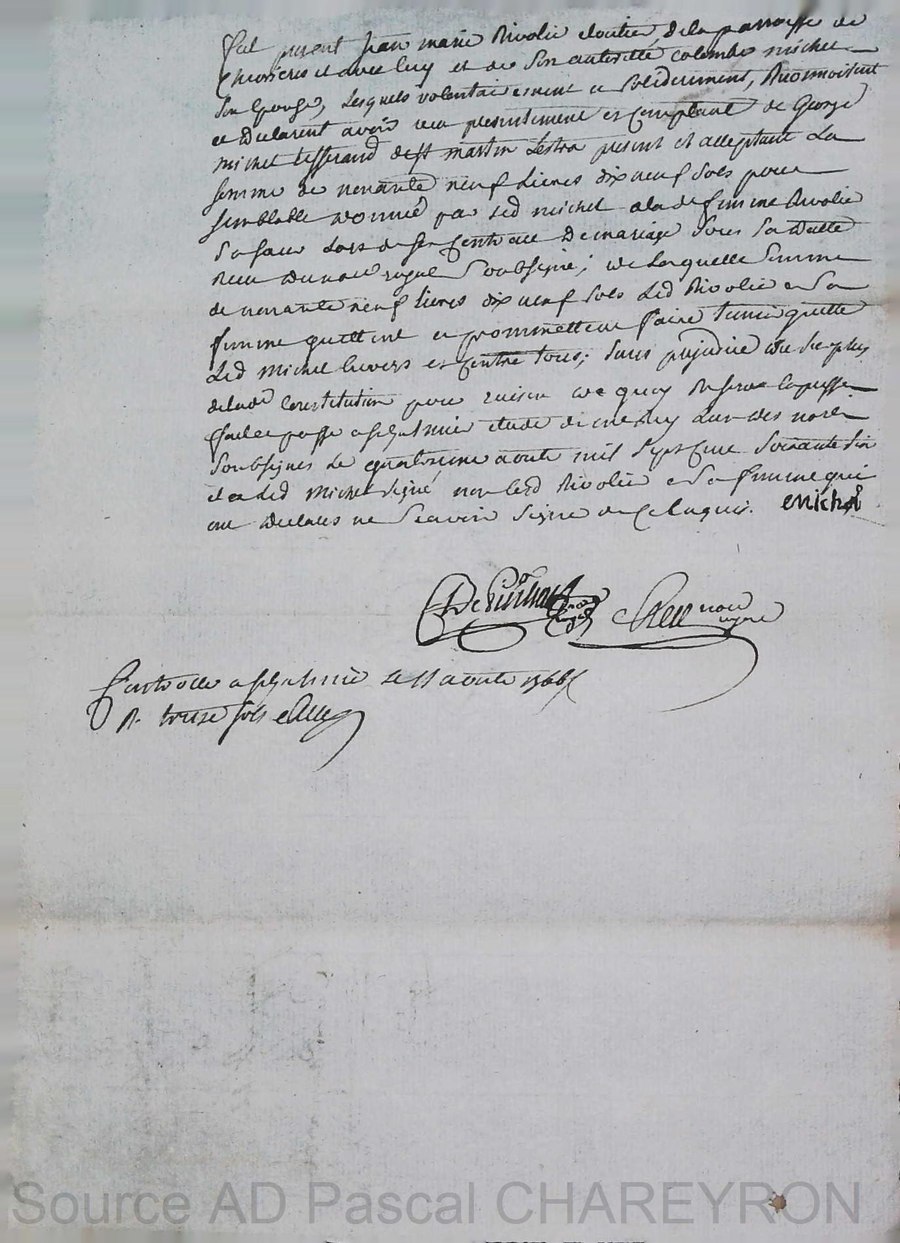 fut present Jean marie Rivolie cloutier de la parroisse de
Chevrieres et avec luy et de son authorité colombe michel
son epouse, lesquels volontairement et solidairement, Reconnoissent
et declarent avoir reçu presentement et comptant de George
michel tisserand de st martin Lestra present et acceptant La
somme de nonante neuf Livres dix neuf sols pour
semblable donnée par led michel a lade femme Rivolie
sa sœur Lors de son Contract de mariage sous sa datte
Reçu du noe royal soubsigné; de Laquelle somme
de nonante neuf livres dix neuf sols Led Rivolie et sa
femme quittent et promettent faire tenir quitte
Led michel Envers et Contre tous; sans prejudice du surplus
de lade Constitution pour raison de quoy
fait et passé a étude de Lun des noes
soubsignés Le quatorzieme aoust mil sept Cent soixante six
et a Led michel signé non Led Rivolie et sa femme qui
ont declarés ne scavoir signer de ce Enquis. michel
noe
royal
Controllé a le aoust 1766
R. treize sols
Source AD Pascal CHAREYRON